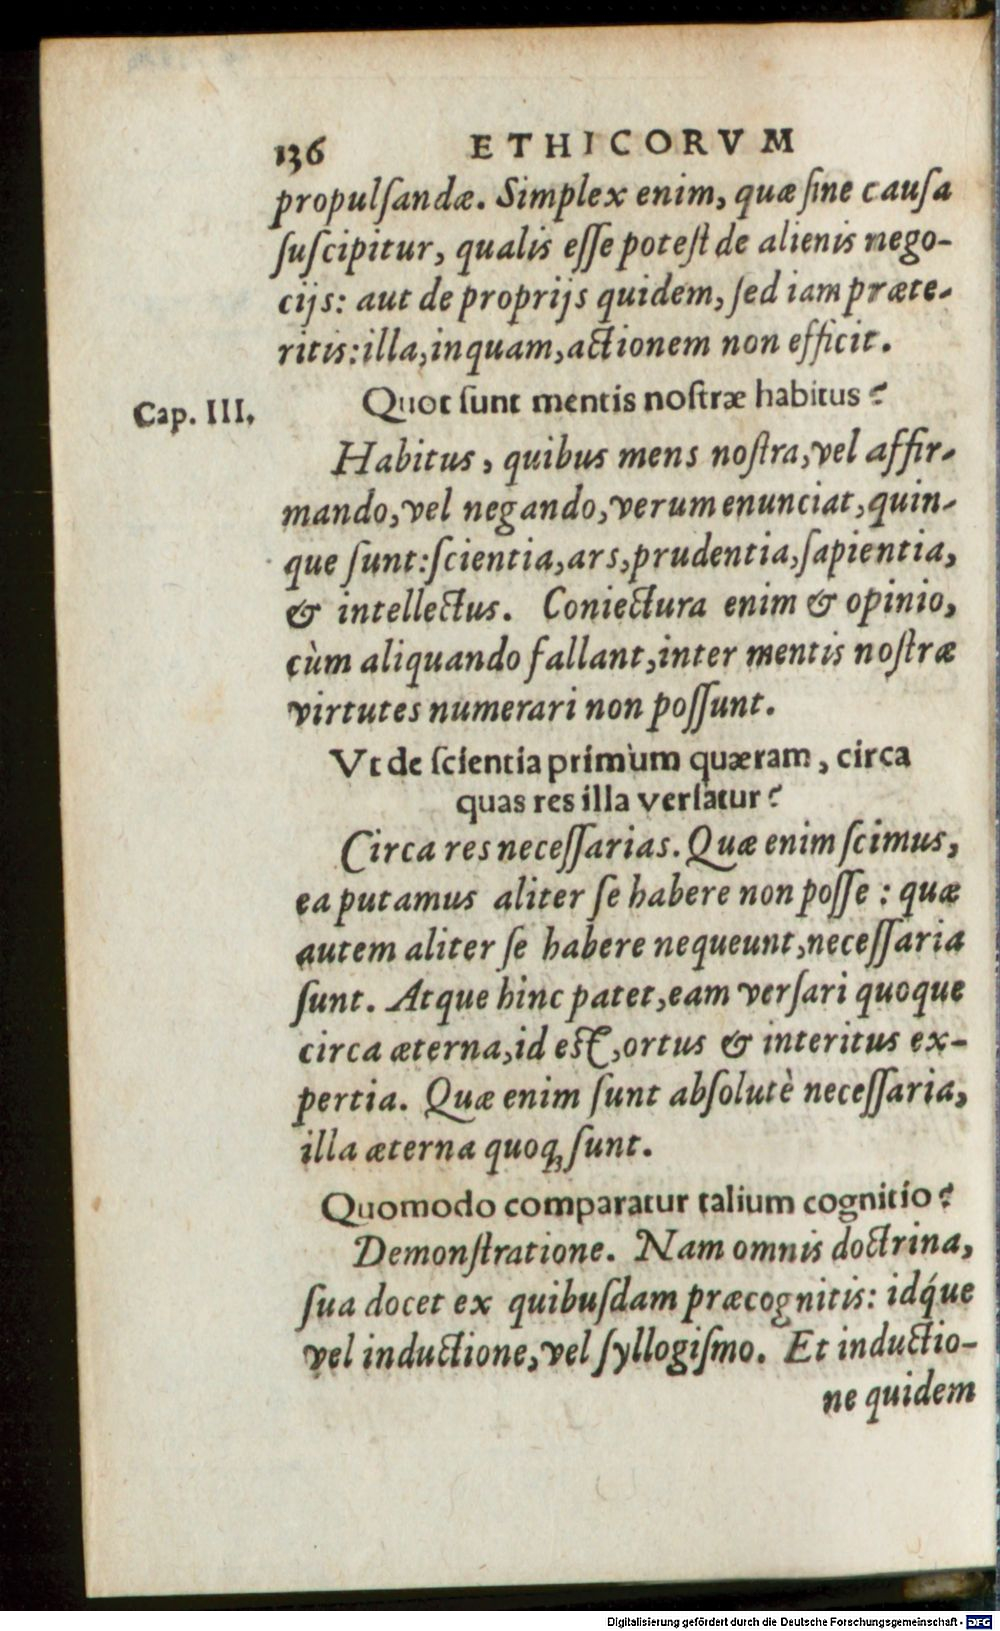 136 ETHICORVM
propulſandæ. Simplex enim, quæ ſine cauſa
ſuſcipitur, qualis eſſe poteſt de alienis nego-
cijs: aut de proprijs quidem, ſed iam præte-
ritis: illa, inquam, actionem non efficit.
Cap. III. Quot ſunt mentis noſtræ habitus?
Habitus, quibus mens noſtra, vel affir-
mando, vel negando, verum enunciat, quin-
que ſunt: ſcientia, ars, prudentia, ſapientia,
& intellectus. Coniectura enim & opinio,
cùm aliquando fallant, inter mentis noſtræ
virtutes numerari non poſſunt.
Vt de ſcientia primùm quæram, circa
quas res illa verſatur?
Circa res neceſſarias. Quæ enim ſcimus,
ea putamus aliter ſe habere non poſſe: quæ
autem aliter ſe habere nequeunt, neceſſaria
ſunt. Atque hinc patet, eam verſari quoque
circa æterna, id eſt, ortus & interitus ex-
pertia. Quæ enim ſunt abſolutè neceſſaria,
illa æterna quoq; ſunt.
Quomodo comparatur talium cognitio?
Demonſtratione. Nam omnis doctrina,
ſua docet ex quibuſdam præcognitis: idq́ue
vel inductione, vel ſyllogiſmo. Et inductio-
ne quidem
Digitalisierung gefördert durch die Deutsche Forschungsgemeinschaft - DFG